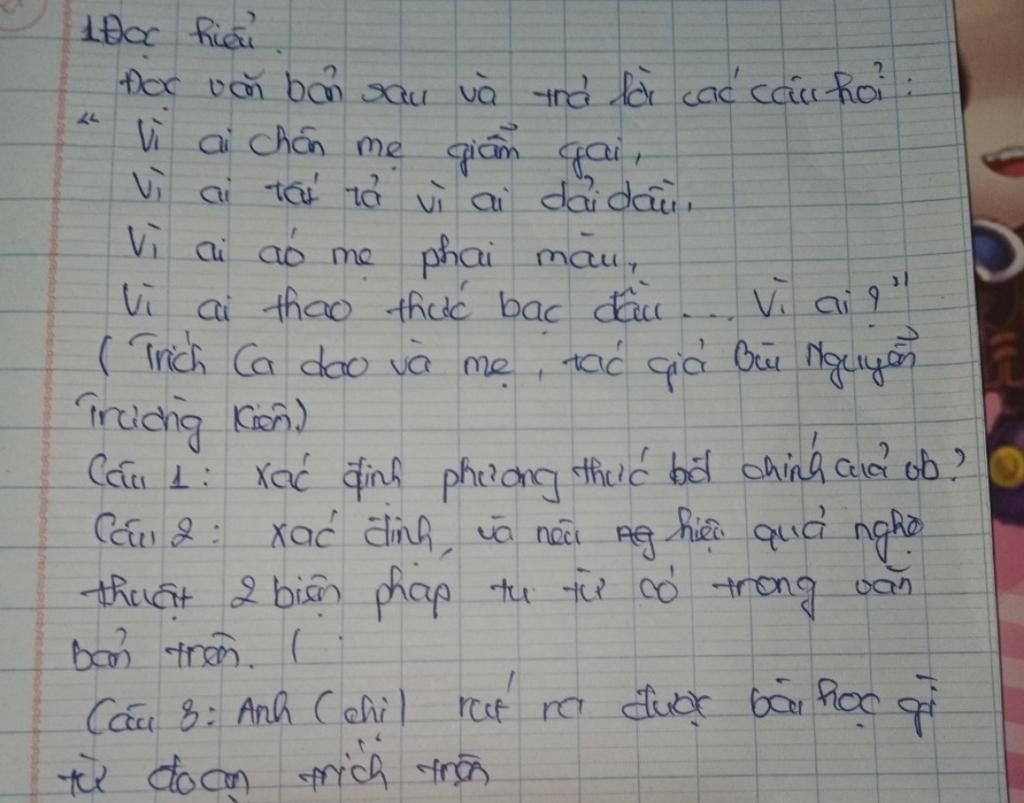 1 Đọc hiểu.
Đọc văn bản sau và trả lời các câu hỏi:
“ Vì ai chân mẹ giẫm gai,
Vì ai tất tả vì ai dãi dầu,
Vì ai áo mẹ phai màu,
Vì ai thao thức bạc đầu ... Vì ai ?”
( Trích Ca dao và mẹ, tác giả Bùi Nguyễn
Trường Kiên)
Câu 1: xác định phương thức bđ chính của vb?
Câu 2: xác định, và nêu hiệu quả nghệ
thuật 2 biện pháp tu từ có trong văn
bản trên. (
Câu 3: Anh (chị) rút ra được bài học gì
từ đoạn trích trên